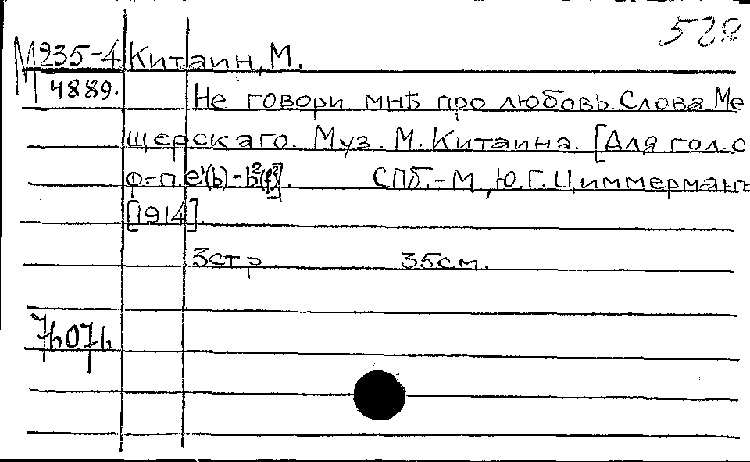 528
М 235-4 Китаин, М.
4889.
Не говори мнѣ про любовь. Слова Ме
щерскаго. Муз. М. Китаина. [Для гол. с
ф-п. СПб.-М., Ю.Г. Циммерманъ
[1914]
3 стр. 35см.